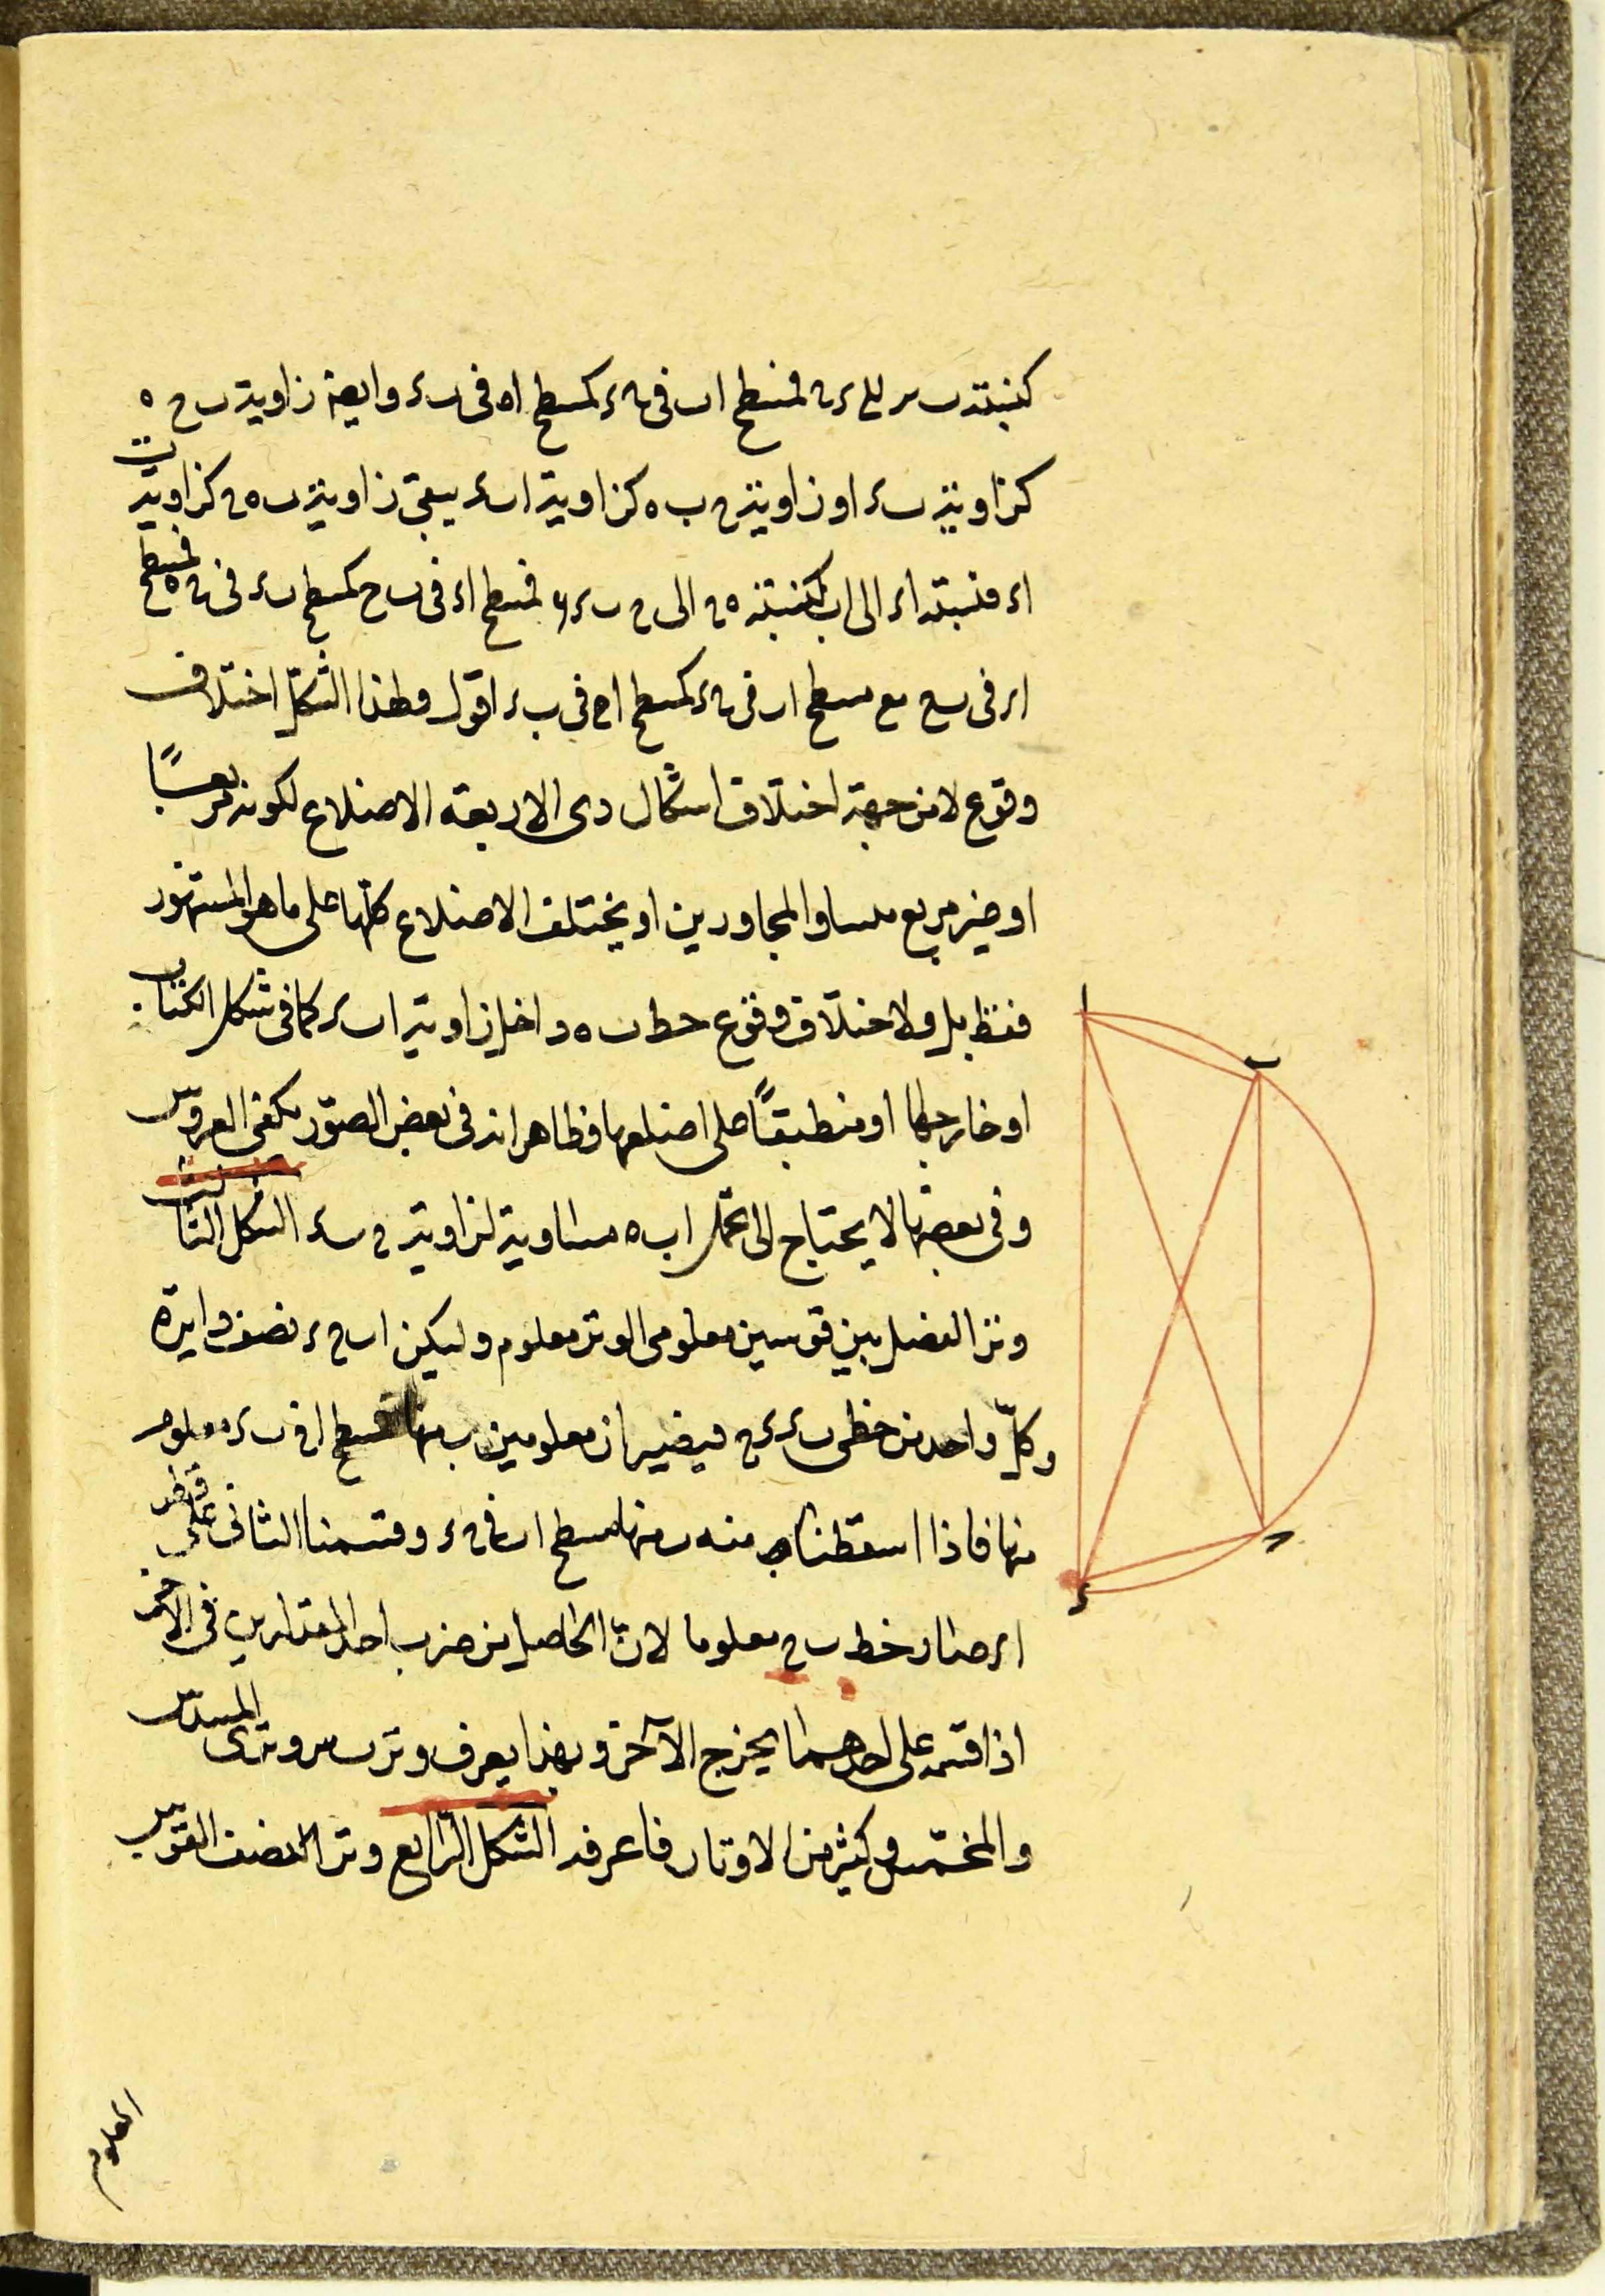 كنسبة ب الى ء فمسطح اب فى ح ء كمسطح اه فى ب ء وايضا زاوية ب ح ه
كزاوية ب ء ا و زاوية ح ب ه كزاوية اب ء يبقى زاوية ب ه ح كزاوية ب
اء فنسبة اء الى اب كنسبة ه ح الى ح ب فمسطح اء فى ب ح كمسطح ب ء فى ح ه فمسطح
اء فى ب ح مع مسطح اب فى ح ء كمسطح ا ح فى ب ء اقول ولهذا الشكل اختلاف
وقوع لا من جهة اختلاف اشكال ذى الاربعة الاضلاع لكونه مربعًا
او غير مربع متساو المجاورين او يختلف الاضلاع كلها على ما هو المشهور
فقط بل ولاختلاف وقوع خط ب ه داخل زاوية اب ء كما فى شكل الكتاب
او خارجها او منطبقًا على اضلعها فظاهر انه فى بعض الصور يكفى العروس
وفى بعضها لا يحتاج الى عمل اب ه مساوية لزاوية ح ب ء الشكل الثالث
وتر الفضل بين قوسين معلومى الوتر معلوم وليكن اب ح ء نصف دايرة
وكل واحد من خطى ب ء ء ح فيصيران معلومين مسطح ا ح فى ب ء معلوم
منها فاذا اسقطنا منه منها مسطح اب فى ح ء وقسمنا الثانى على قطر
اء صار خط ب ح معلوما لانّ الحاصل من ضرب احد المقدارين فى الآخر
اذا قسم على احدهما يخرج الآخر وبهذا يعرف وتر ب س وترى المسدس
والمخمّس وكثير من الاوتار فاعرفه الشكل الرابع وتر النصف القوس
المعلوم
ا
ب
ح
ء